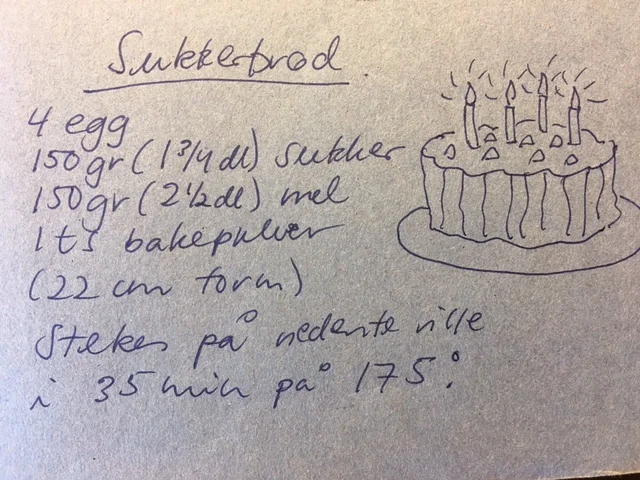 Sukkerbrød.
4 egg
150gr (1 3/4 dl) sukker
150gr (2 1/2 dl) mel
1 ts bakepulver
(22 cm form)
Stekes på nederste rille
i 35 min på 175°